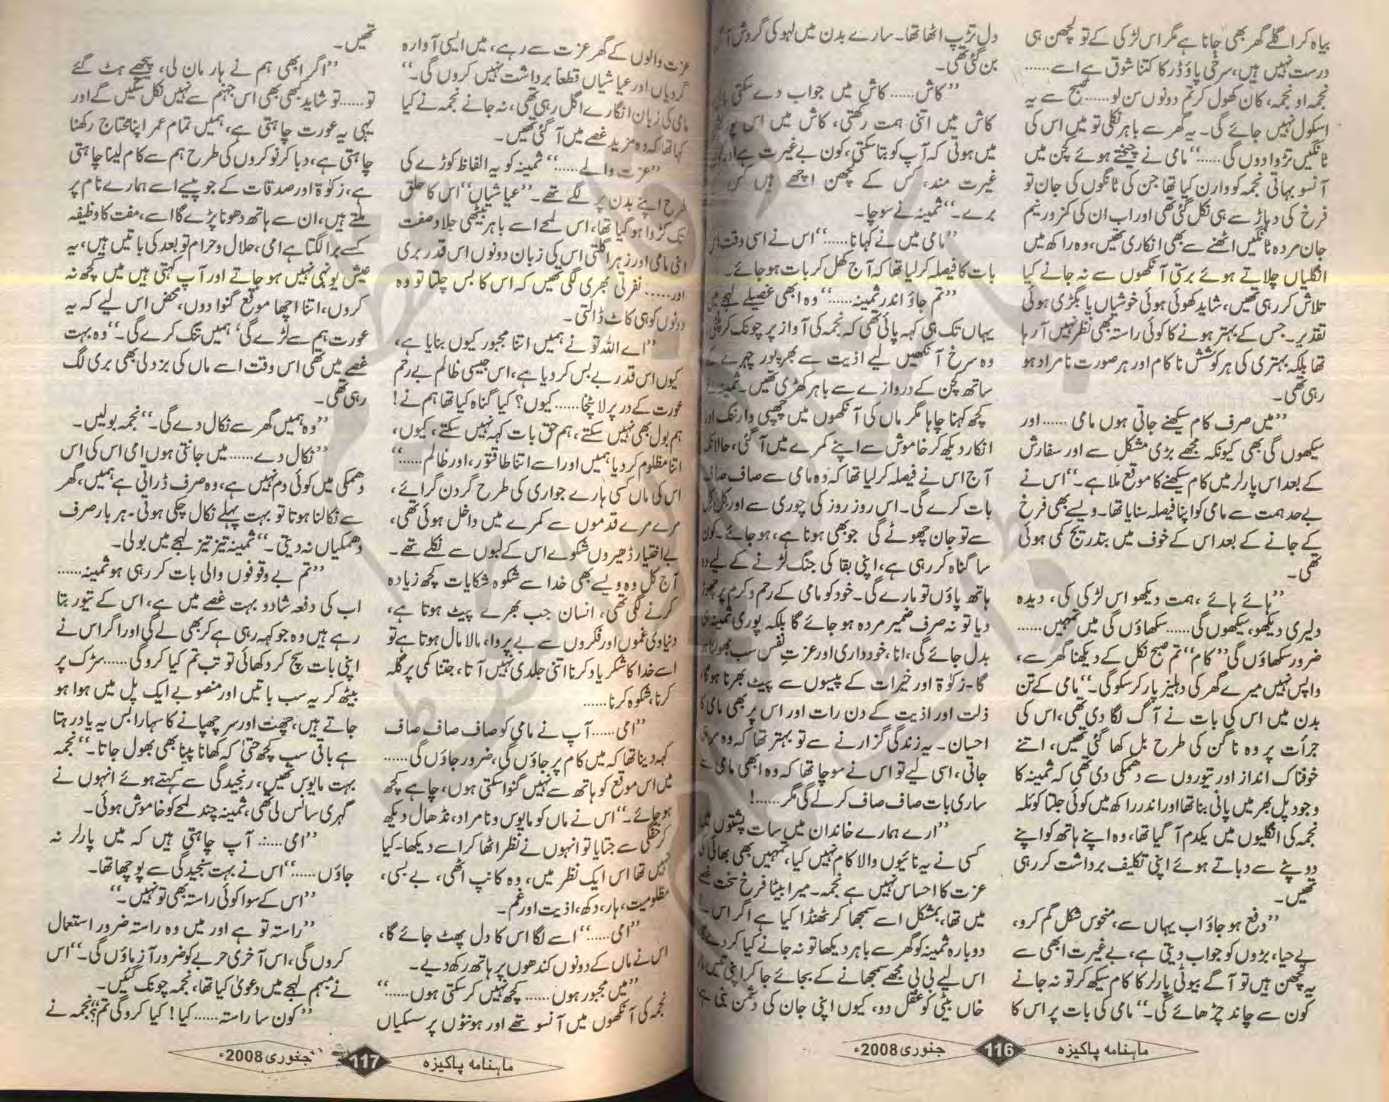 بیاہ کر اگلے گھر بھی جانا ہے مگر اس لڑکی کے تو لچھن ہی
درست نہیں ہیں، سرخی پاؤڈر کا کتنا شوق ہے اسے......
نجمہ او نجمہ، کان کھول کر تم دونوں سن لو...... صبح سے یہ
اسکول نہیں جائے گی۔ یہ گھر سے باہر نکلی تو میں اس کی
ٹانگیں تڑوا دوں گی......‘‘ مامی نے چیختے ہوئے کچن میں
آنسو بہاتی نجمہ کو وارن کیا تھا جن کی ٹانگوں کی جان تو
فرخ کی دہاڑ سے ہی نکل گئی تھی اور اب ان کی کمزور نیم
جان مردہ ٹانگیں اٹھنے سے بھی انکاری تھیں، وہ راکھ میں
انگلیاں چلاتے ہوئے برستی آنکھوں سے نہ جانے کیا
تلاش کر رہی تھیں، شاید کھوئی ہوئی خوشیاں یا بگڑی ہوئی
تقدیر۔ جس کے بہتر ہونے کا کوئی راستہ بھی نظر نہیں آ رہا
تھا بلکہ بہتری کی ہر کوشش ناکام اور ہر صورت نامراد ہو
رہی تھی۔
’’میں صرف کام سیکھنے جاتی ہوں مامی ...... اور
سیکھوں گی بھی کیونکہ مجھے بڑی مشکل سے اور سفارش
کے بعد اس پارلر میں کام سیکھنے کا موقع ملا ہے۔‘‘ اس نے
بے حد ہمت سے مامی کو اپنا فیصلہ سنایا تھا۔ ویسے بھی فرخ
کے جانے کے بعد اس کے خوف میں بتدریج کمی ہوئی
تھی۔
’’ہائے ہائے، ہمت دیکھو اس لڑکی کی، دیدہ
دلیری دیکھو، سیکھوں گی...... سکھاؤں گی میں تمہیں......
ضرور سکھاؤں گی ’’کام‘‘ تم صبح نکل کے دیکھنا گھر سے،
واپس نہیں میرے گھر کی دہلیز پار کر سکو گی۔‘‘ مامی کے تن
بدن میں اس کی بات نے آگ لگا دی تھی، اس کی
جرأت پر وہ ناگن کی طرح بل کھا گئی تھیں، اتنے
خوفناک انداز اور تیوروں سے دھمکی دی تھی کہ ثمینہ کا
وجود پل بھر میں پانی بنا تھا اور اندر راکھ میں کوئی جلتا کوئلہ
نجمہ کی انگلیوں میں یکدم آ گیا تھا، وہ اپنے ہاتھ کو اپنے
دوپٹے سے دباتے ہوئے اپنی تکلیف برداشت کر رہی
تھیں۔
’’دفع ہو جاؤ اب یہاں سے، منحوس شکل گم کرو،
بے حیا، بڑوں کو جواب دیتی ہے، بے غیرت ابھی سے
یہ لچھن ہیں تو آگے بیوٹی پارلر کا کام سیکھ کر تو نہ جانے
کون سے چاند چڑھائے گی۔‘‘ مامی کی بات پر اس کا
دل تڑپ اٹھا تھا۔ سارے بدن میں لہو کی گردش آگ
بن گئی تھی۔
’’کاش...... کاش میں جواب دے سکتی
کاش میں اتنی ہمت رکھتی، کاش میں اس
میں ہوتی کہ آپ کو بتا سکتی، کون بے غیرت ہے اور کون
غیرت مند، کس کے لچھن اچھے ہیں کس کے
برے۔‘‘ ثمینہ نے سوچا۔
’’مامی میں نے کہا نا......‘‘ اس نے اسی وقت
بات کا فیصلہ کر لیا تھا کہ آج کھل کر بات ہو جائے۔
’’تم جاؤ اندر ثمینہ......‘‘ وہ ابھی غصیلے لہجے میں
یہاں تک ہی کہہ پائی تھی کہ نجمہ کی آواز پر چونک کر پلٹی
وہ سرخ آنکھیں لیے اذیت سے بھرپور چہرے کے
ساتھ کچن کے دروازے سے باہر کھڑی تھیں۔ ثمینہ نے
کچھ کہنا چاہا مگر ماں کی آنکھوں میں چھپی وارننگ اور
انکار دیکھ کر خاموش سے اپنے کمرے میں آ گئی، حالانکہ
آج اس نے فیصلہ کر لیا تھا کہ وہ مامی سے صاف صاف
بات کرے گی۔ اس روز روز کی چوری سے اور
سے تو جان چھوٹے گی جو بھی ہونا ہے، ہو جائے۔ کون
سا گناہ کر رہی ہے، اپنی بقا کی جنگ لڑنے کے لیے وہ
ہاتھ پاؤں تو مارے گی۔ خود کو مامی کے رحم و کرم پر چھوڑ
دیا تو نہ صرف ضمیر مردہ ہو جائے گا بلکہ پوری ثمینہ ہی
بدل جائے گی، انا، خودداری اور عزت نفس سب بھولنا ہو
گا۔ زکوٰۃ اور خیرات کے پیسوں سے پیٹ بھرنا ہو گا،
ذلت اور اذیت کے دن رات اور اس پر بھی مامی کا
احسان۔ یہ زندگی گزارنے سے تو بہتر تھا کہ وہ مر
جاتی، اسی لیے تو اس نے سوچا تھا کہ وہ ابھی مامی سے
ساری بات صاف صاف کر لے گی مگر......!
’’ارے ہمارے خاندان میں سات پشتوں میں
کسی نے یہ نائیوں والا کام نہیں کیا، تمہیں بھی بھائی کی
عزت کا احساس نہیں ہے نجمہ۔ میرا بیٹا فرخ سخت غصے
میں تھا، بمشکل اسے سمجھا کر ٹھنڈا کیا ہے اگر اس نے
دوبارہ ثمینہ کو گھر سے باہر دیکھا تو نہ جانے کیا کر دے گا
اس لیے بی بی مجھے سمجھانے کے بجائے جا کر اپنی
خاں بیٹی کو عقل دو، کیوں اپنی جان کی دشمن بنی ہے
ماہنامہ پاکیزہ 116 جنوری 2008ء
عزت والوں کے گھر عزت سے رہے، میں ایسی آوارہ
گردیاں اور عیاشیاں قطعاً برداشت نہیں کروں گی۔‘‘
مامی کی زبان انگارے اگل رہی تھی، نہ جانے نجمہ نے کیا
کہا تھا کہ وہ مزید غصے میں آ گئی تھیں۔
’’عزت والے......‘‘ ثمینہ کو یہ الفاظ کوڑے کی
طرح اپنے بدن پر لگے تھے۔ ’’عیاشیاں‘‘ اس کا حلق
تک کڑوا ہو گیا تھا، اس لمحے اسے باہر بیٹھی جلاد صفت
اپنی مامی اور زہر اگلتی اس کی زبان دونوں اس قدر بری
اور...... نفرتی بھری لگی تھیں کہ اس کا بس چلتا تو وہ
دونوں کو ہی کاٹ ڈالتی۔
’’اے اللہ تو نے ہمیں اتنا مجبور کیوں بنایا ہے،
کیوں اس قدر بے بس کر دیا ہے، اس جیسی ظالم بے رحم
عورت کے در پر لا پٹخا...... کیوں؟ کیا گناہ کیا تھا ہم نے!
ہم بول بھی نہیں سکتے، ہم حق بات کہہ نہیں سکتے، کیوں،
اتنا مظلوم کر دیا ہمیں اور اسے اتنا طاقتور، اور ظالم......‘‘
اس کی ماں کسی ہارے جواری کی طرح گردن گرائے،
مرے مرے قدموں سے کمرے میں داخل ہوئی تھی،
بے اختیار ڈھیروں شکوے اس کے لبوں سے نکلے تھے۔
آج کل وہ ویسے بھی خدا سے شکوہ شکایات کچھ زیادہ
کرنے لگی تھی، انسان جب بھرے پیٹ ہوتا ہے،
دنیاوی غموں اور فکروں سے بے پروا، مالا مال ہوتا ہے تو
اسے خدا کا شکر یاد کرنا اتنی جلدی نہیں آتا، جتنا کمی پر گلہ
کرنا، شکوہ کرنا......
’’امی...... آپ نے مامی کو صاف صاف صاف
کہہ دینا تھا کہ میں کام پر جاؤں گی، ضرور جاؤں گی......
میں اس موقع کو ہاتھ سے نہیں گنوا سکتی ہوں، چاہے کچھ
ہو جائے۔‘‘ اس نے ماں کو مایوس و نامراد، نڈھال دیکھ
کر خفگی سے جتایا تو انہوں نے نظر اٹھا کر اسے دیکھا۔ کیا
نہیں تھا اس ایک نظر میں، وہ کانپ اٹھی، بے بسی،
مظلومیت، ہار، دکھ، اذیت اور غم۔
’’امی......‘‘ اسے لگا اس کا دل پھٹ جائے گا،
اس نے ماں کے دونوں کندھوں پر ہاتھ رکھ دیے۔
’’میں مجبور ہوں...... کچھ نہیں کر سکتی ہوں......‘‘
نجمہ کی آنکھوں میں آنسو تھے اور ہونٹوں پر سسکیاں
تھیں۔
’’اگر ابھی ہم نے ہار مان لی، پیچھے ہٹ گئے
تو...... تو شاید کبھی بھی اس جہنم سے نہیں نکل سکیں گے اور
یہی یہ عورت چاہتی ہے، ہمیں تمام عمر اپنا محتاج رکھنا
چاہتی ہے، دبا کر نوکروں کی طرح ہم سے کام لینا چاہتی
ہے، زکوٰۃ اور صدقات کے جو پیسے اسے ہمارے نام پر
ملتے ہیں، ان سے ہاتھ دھونا پڑے گا اسے، مفت کا وظیفہ
کسے برا لگتا ہے امی، حلال و حرام تو بعد کی باتیں ہیں، یہ
عیش یونہی نہیں ہو جاتے اور آپ کہتی ہیں میں کچھ نہ
کروں، اتنا اچھا موقع گنوا دوں، محض اس لیے کہ یہ
عورت ہم سے لڑے گی‘ ہمیں تنگ کرے گی۔‘‘ وہ بہت
غصے میں تھی اس وقت اسے ماں کی بزدلی بھی بری لگ
رہی تھی۔
’’وہ ہمیں گھر سے نکال دے گی۔‘‘ نجمہ بولیں۔
’’نکال دے...... میں جانتی ہوں امی اس کی اس
دھمکی میں کوئی دم نہیں ہے، وہ صرف ڈراتی ہے ہمیں، گھر
سے نکالنا ہوتا تو بہت پہلے نکال چکی ہوتی۔ ہر بار صرف
دھمکیاں نہ دیتی۔‘‘ ثمینہ تیز تیز لہجے میں بولی۔
’’تم بے وقوفوں والی بات کر رہی ہو ثمینہ......
اب کی دفعہ شادو بہت غصے میں ہے، اس کے تیور بتا
رہے ہیں وہ جو کہہ رہی ہے کر بھی لے گی اور اگر اس نے
اپنی بات سچ کر دکھائی تو تب تم کیا کرو گی...... سڑک پر
بیٹھ کر یہ سب باتیں اور منصوبے ایک پل میں ہوا ہو
جاتے ہیں، چھت اور سر چھپانے کا سہارا بس یہ یاد رہتا
ہے باقی سب کچھ حتیٰ کہ کھانا پینا بھی بھول جاتا۔‘‘ نجمہ
بہت مایوس تھیں، رنجیدگی سے کہتے ہوئے انہوں نے
گہری سانس لی تھی، ثمینہ چند لمحے کو خاموش ہوئی۔
’’امی...... آپ چاہتی ہیں کہ میں پارلر نہ
جاؤں......‘‘ اس نے بہت سنجیدگی سے پوچھا تھا۔
’’اس کے سوا کوئی راستہ بھی تو نہیں۔‘‘
’’راستہ تو ہے اور میں وہ راستہ ضرور استعمال
کروں گی، اس آخری حربے کو ضرور آزماؤں گی۔‘‘ اس
نے مبہم لہجے میں دعویٰ کیا تھا، نجمہ چونک گئیں۔
’’کون سا راستہ...... کیا! کیا کرو گی تم؟‘‘ نجمہ نے
ماہنامہ پاکیزہ 117 جنوری 2008ء